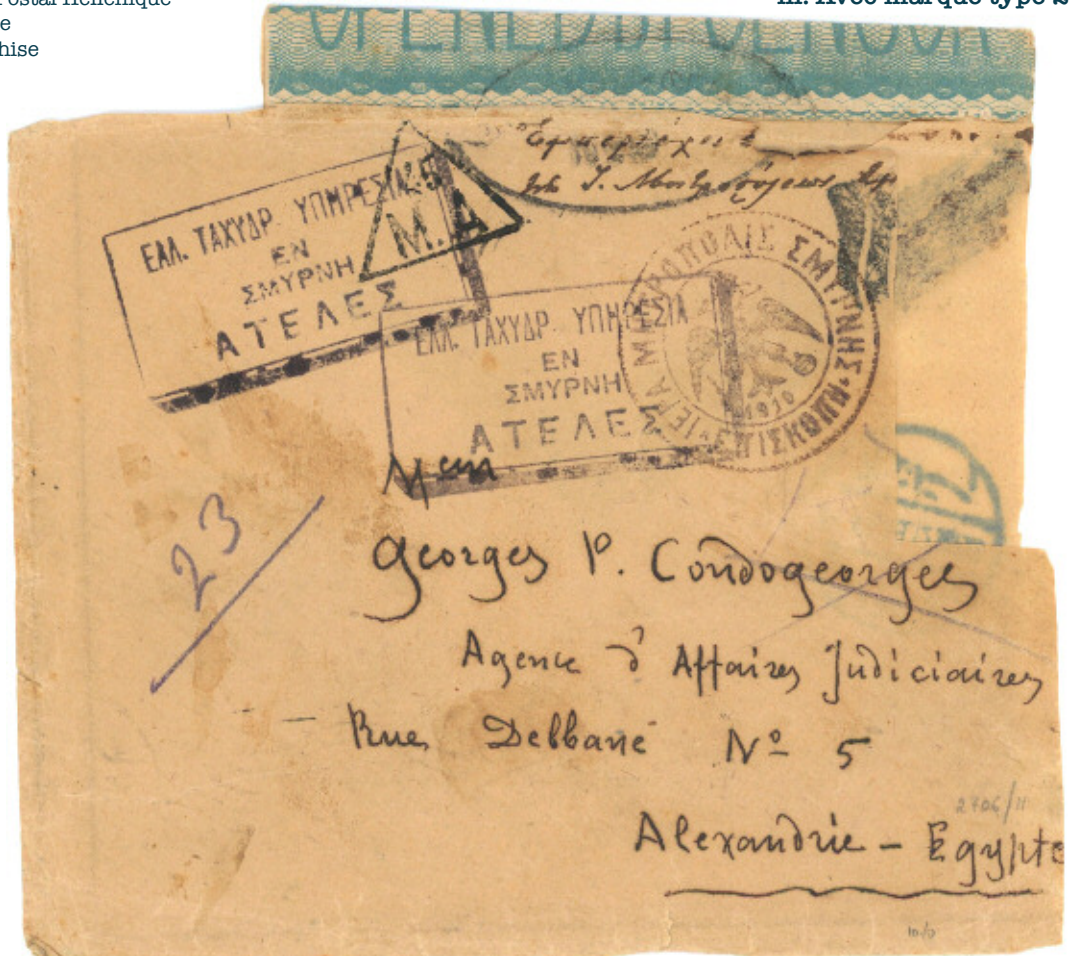 ostal Hellénique
e
hise
m. Avec marque type 2
OPENED BY CENSOR
Ἐμπεριέχει
Ἱ. Μητροπόλεως
ΕΛΛ. ΤΑΧΥΔΡ. ΥΠΗΡΕΣΙΑ
ΕΝ
ΣΜΥΡΝΗ
ΑΤΕΛΕΣ
Μ.Α
ΕΛΛ. ΤΑΧΥΔΡ. ΥΠΗΡΕΣΙΑ
ΕΝ
ΣΜΥΡΝΗ
ΑΤΕΛΕΣ
ΙΕΡΑ ΜΗΤΡΟΠΟΛΙΣ ΣΜΥΡΝΗΣ
ΕΠΙΣΚΟΠΗ
1910
23
Georges P. Condogeorges
Agence d'Affaires Judiciaires
Rue Debbané Nº 5
Alexandrie - Egypte
2706/11
10/0